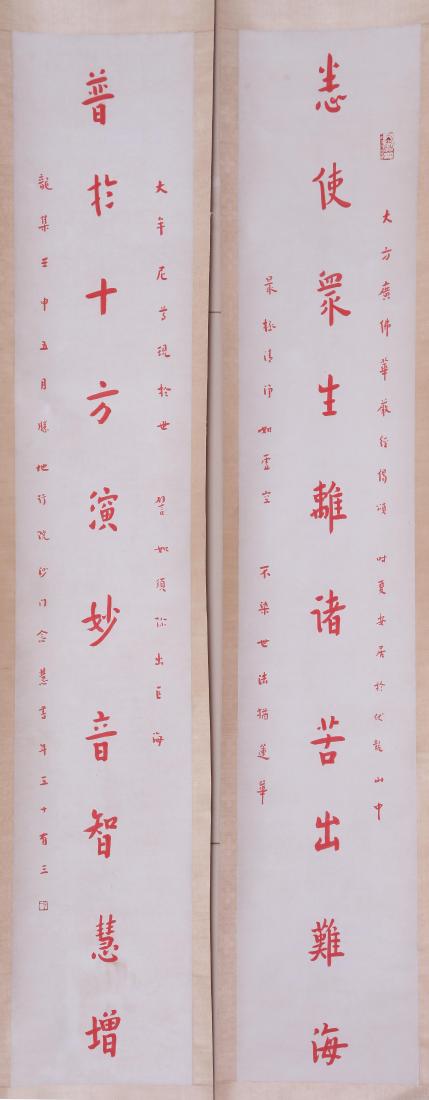 大方廣佛華嚴经偈頌 时夏安居於伏龍山中
悉使眾生離诸苦出難海
最極清淨如虛空 不染世法猶蓮華
大牟尼尊現於世 譬如須弥出巨海
普於十方演妙音智慧增
龍集壬申五月勝地行院沙门念慧書年五十有三